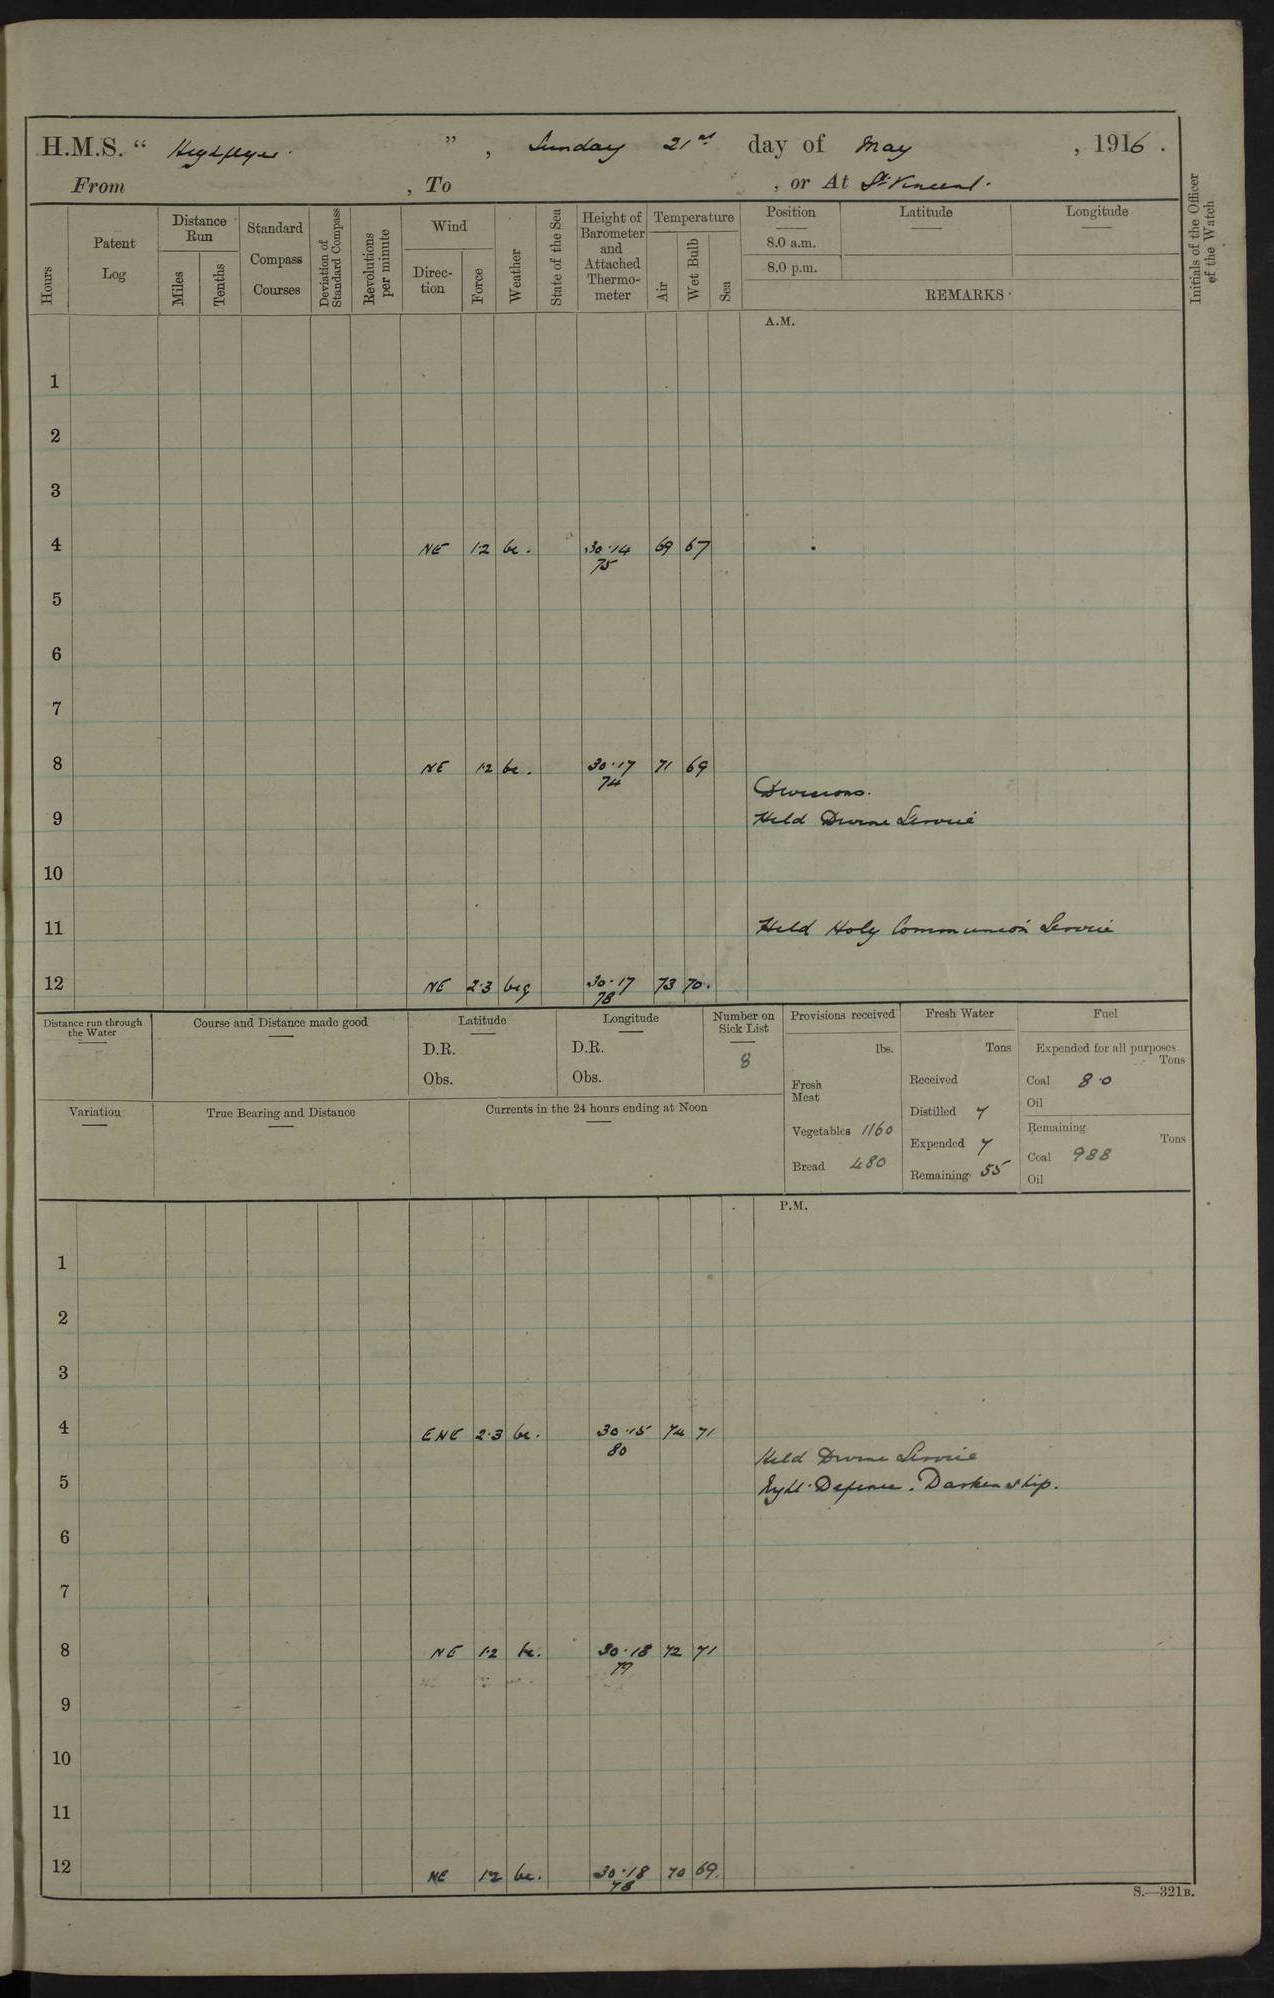 H.M.S. " Highflyer. ", Sunday 21st day of May, 1916.
From , To , or At St. Vincent.
Hours
Patent Log
Distance Run
Miles
Tenths
Standard Compass Courses
Deviation of Standard Compass
Revolutions per minute
Wind
Direction
Force
Weather
State of the Sea
Height of Barometer and Attached Thermometer
Temperature
Air
Wet Bulb
Sea
Position
Latitude
Longitude
8.0 a.m.
8.0 p.m.
REMARKS
Initials of the Officer of the Watch
A.M.
1
2
3
4 NE 1.2 bc. 30.14 69 67
75
5
6
7
8 NE 1.2 bc. 30.17 71 69
74
Divisions.
9 Held Divine Service
10
11 Held Holy Communion Service
12 NE 2.3 bcg 30.17 73 70.
78
Distance run through the Water
Course and Distance made good
Latitude
D.R.
Obs.
Longitude
D.R.
Obs.
Number on Sick List
8
Provisions received
lbs.
Fresh Meat
Vegetables 1160
Bread 480
Fresh Water
Tons
Received
Distilled 7
Expended 7
Remaining 55
Fuel
Expended for all purposes
Tons
Coal 8.0
Oil
Remaining
Tons
Coal 988
Oil
Variation
True Bearing and Distance
Currents in the 24 hours ending at Noon
P.M.
1
2
3
4 ENE 2.3 bc. 30.15 74 71
80
Held Divine Service
5 Night Defence. Darken ship.
6
7
8 NE 1.2 bc. 30.18 72 71
79
9
10
11
12 NE 1.2 bc. 30.18 70 69.
78
S.—321B.